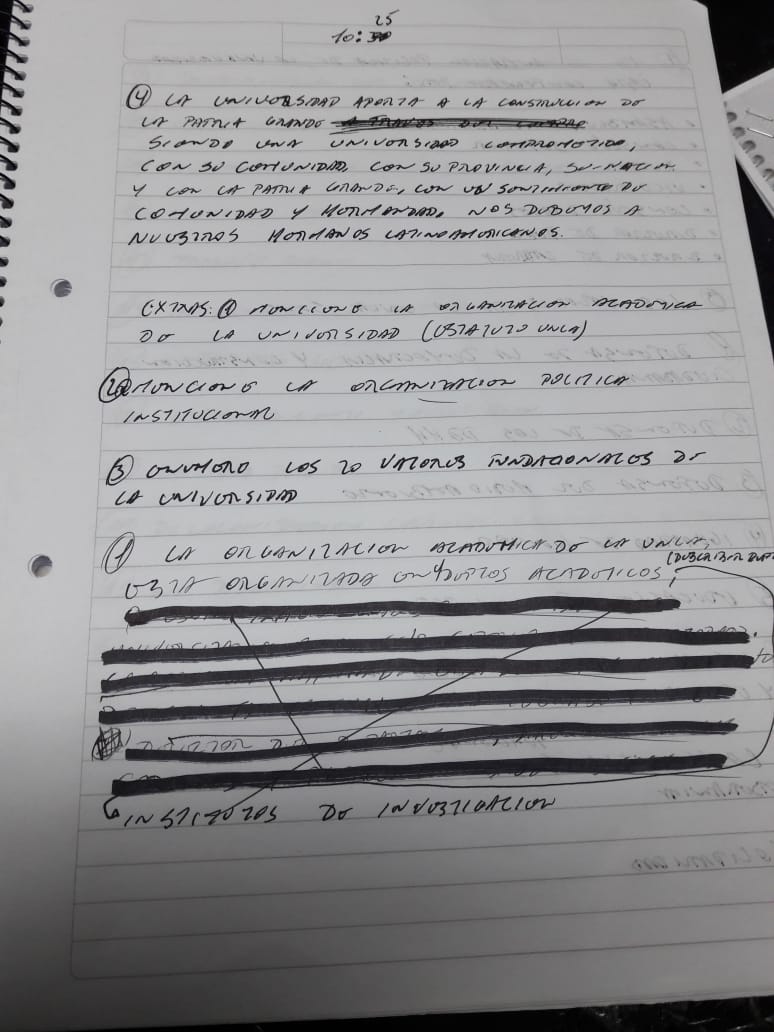 25
10:
④ LA UNIVERSIDAD APORTA A LA CONSTRUCCION DE
LA PATRIA GRANDE
SIENDO UNA UNIVERSIDAD COMPROMETIDA,
CON SU COMUNIDAD, CON SU PROVINCIA, SU NACION
Y CON LA PATRIA GRANDE, CON UN SENTIMIENTO DE
COMUNIDAD Y HERMANDAD, NOS DEBEMOS A
NUESTROS HERMANOS LATINOAMERICANOS.
EXTRAS: ① MENCIONE LA ORGANIZACION ACADEMICA
DE LA UNIVERSIDAD (ESTATUTO UNLA)
② MENCIONE LA ORGANIZACION POLITICA
INSTITUCIONAL
③ ENUMERE LOS 20 VALORES FUNDACIONALES DE
LA UNIVERSIDAD
① LA ORGANIZACION ACADEMICA DE LA UNLA,
ESTA ORGANIZADA EN 4 DEPTOS ACADEMICOS,
INSTITUTOS DE INVESTIGACION